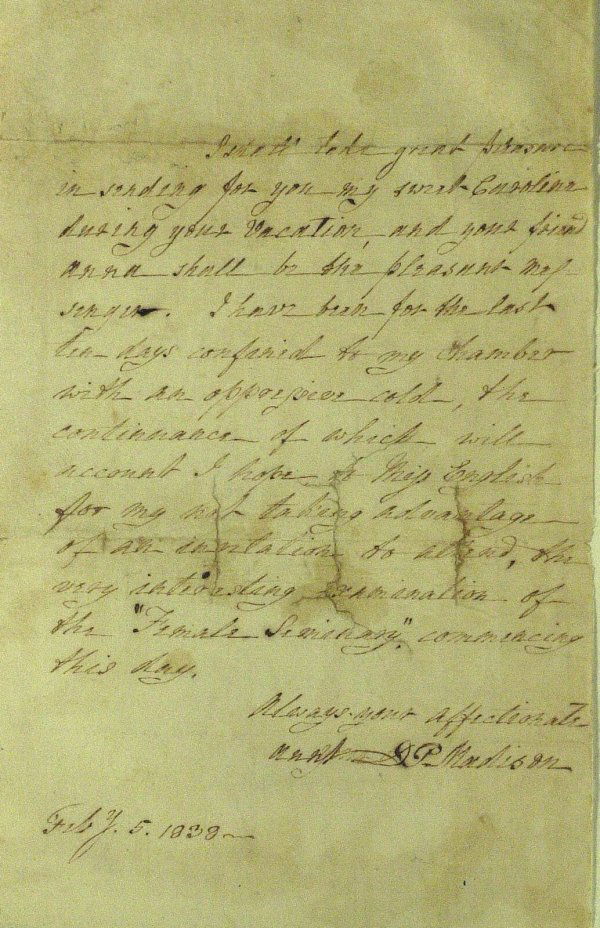 I shall take great pleasure
in sending for you my sweet Caroline
during your Vacation, and your friend
anna shall be the pleasant mes-
senger. I have been for the last
ten days confined to my chamber
with an oppressive cold, the
continuance of which will
account I hope to Miss English
for my not taking advantage
of an invitation to attend, the
very interesting examination of
the "Female Seminary", commencing
this day.
Always your affectionate
aunt D P. Madison
Feby. 5. 1838